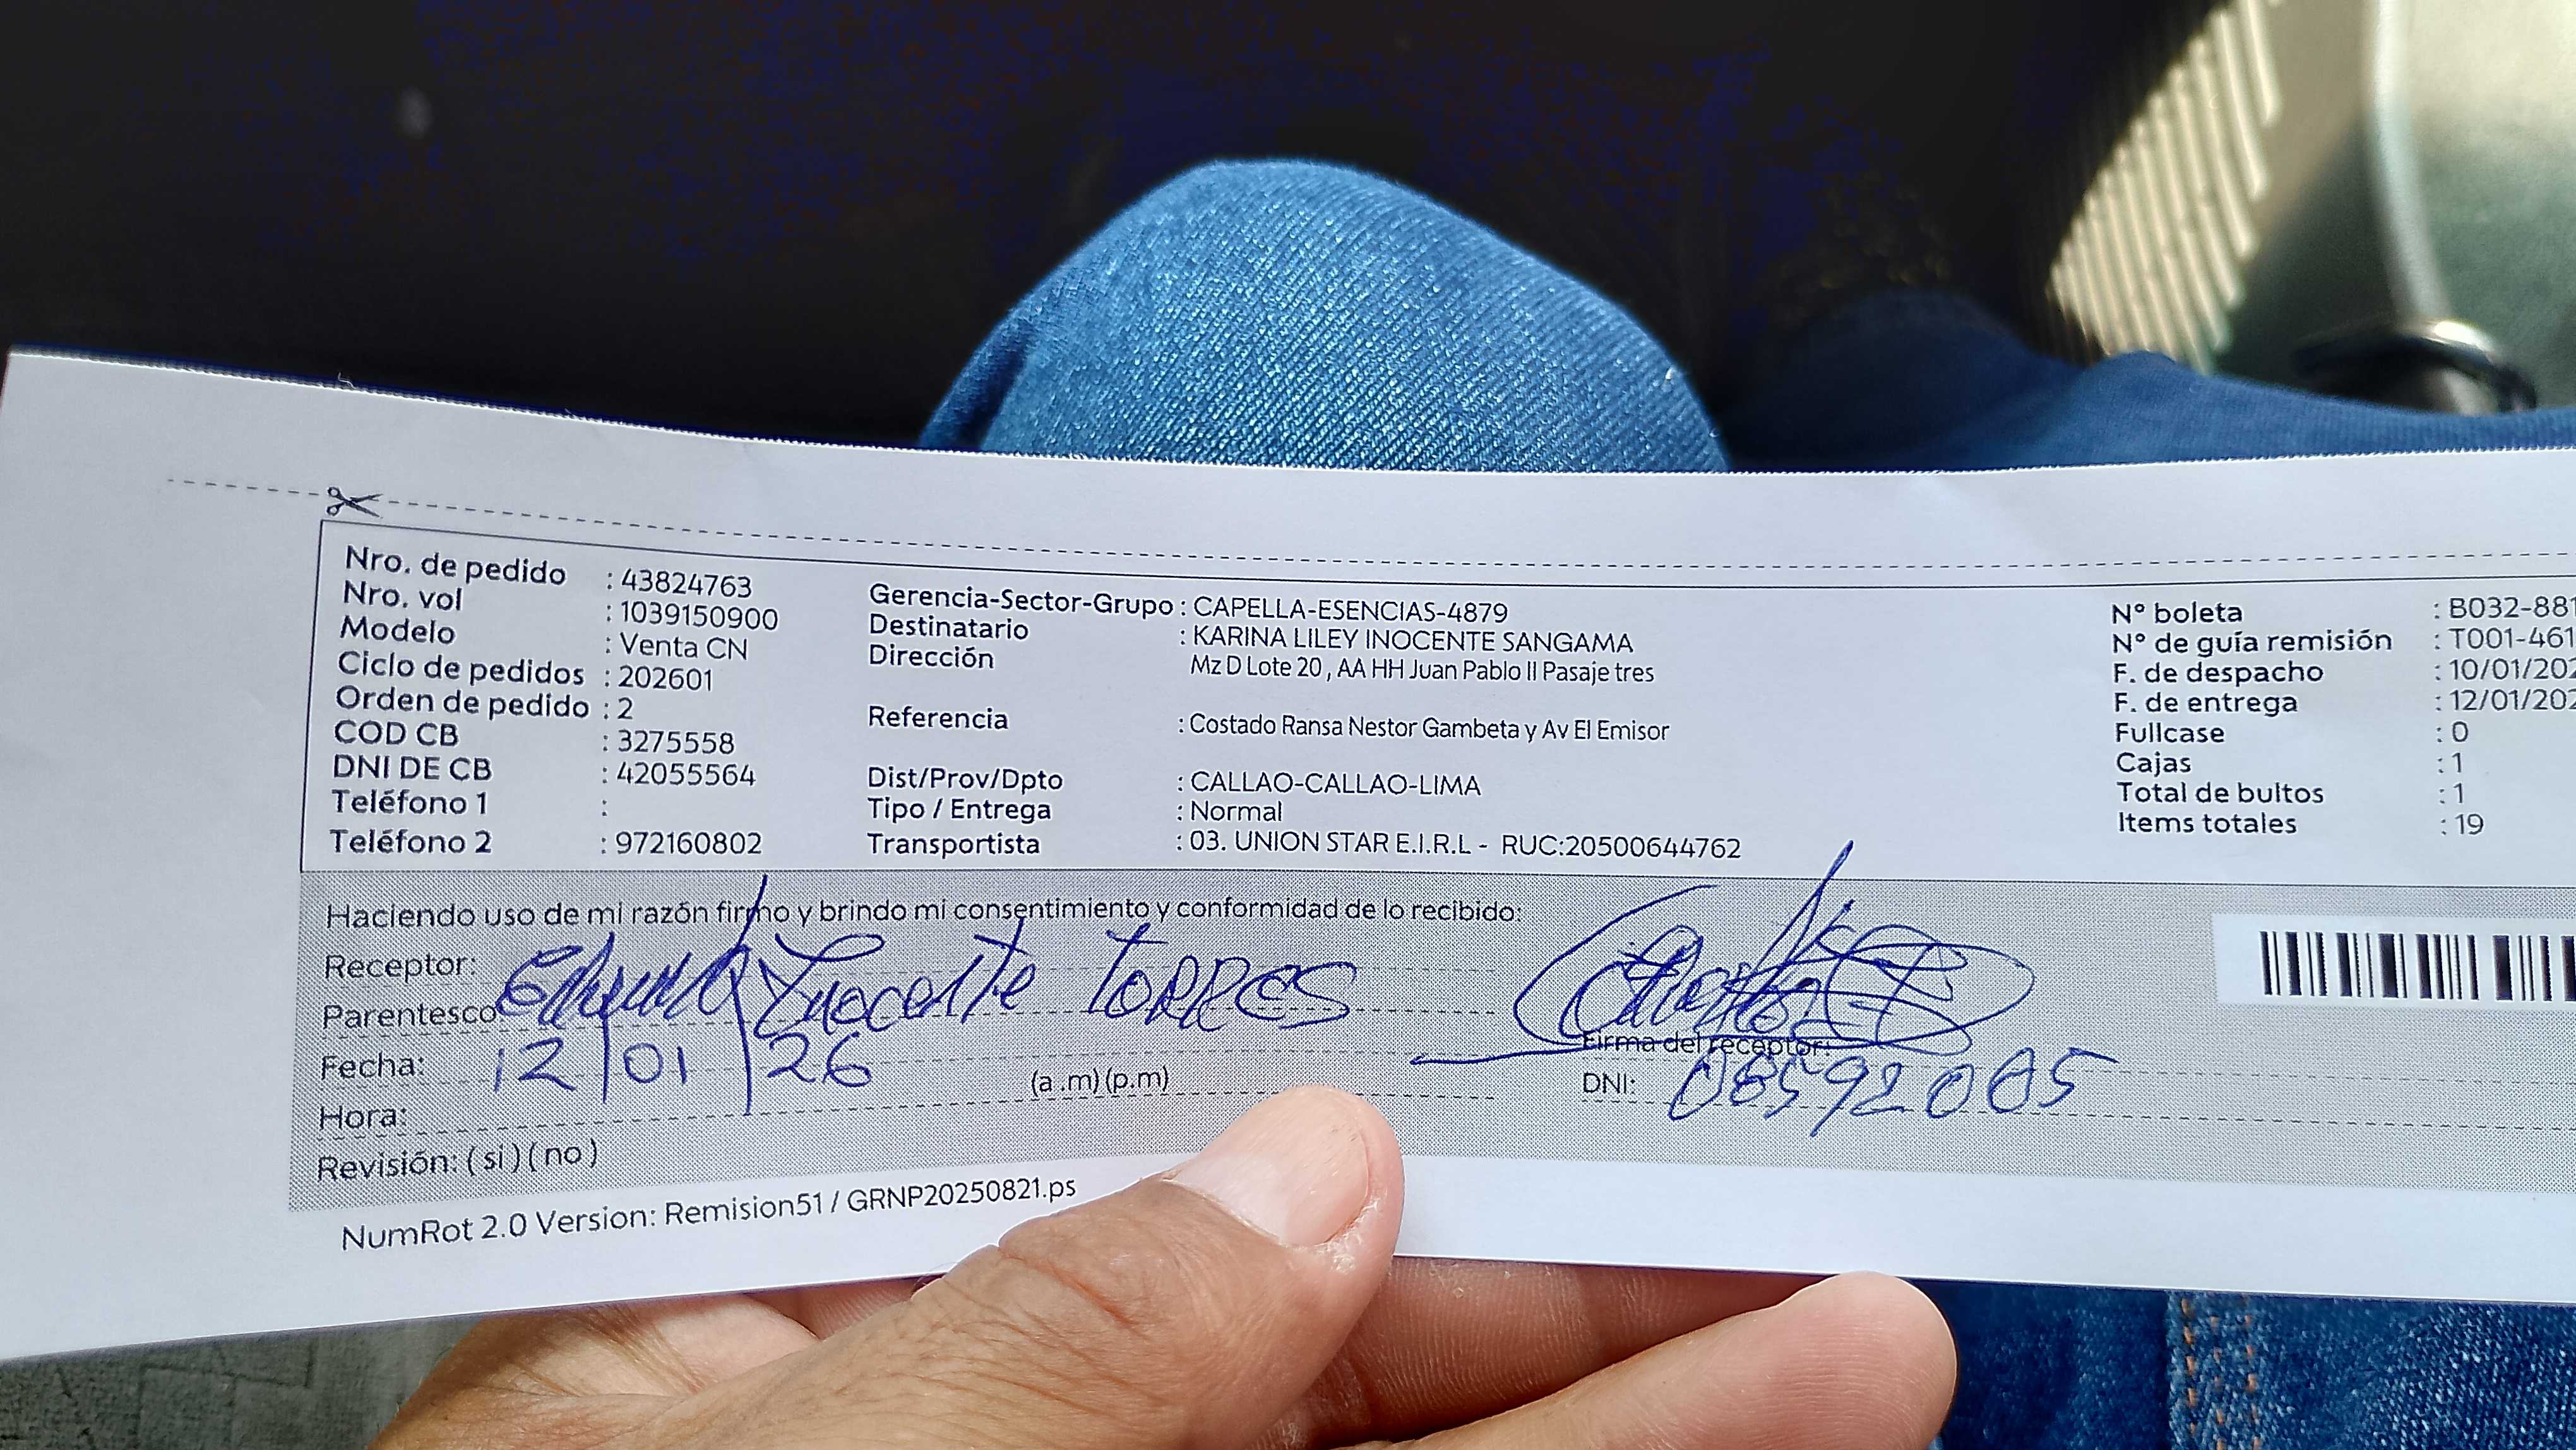 Nro. de pedido : 43824763
Nro. vol : 1039150900
Modelo : Venta CN
Ciclo de pedidos : 202601
Orden de pedido : 2
COD CB : 3275558
DNI DE CB : 42055564
Teléfono 1 :
Teléfono 2 : 972160802
Gerencia-Sector-Grupo : CAPELLA-ESENCIAS-4879
Destinatario : KARINA LILEY INOCENTE SANGAMA
Dirección Mz D Lote 20 , AA HH Juan Pablo II Pasaje tres
Referencia : Costado Ransa Nestor Gambeta y Av El Emisor
Dist/Prov/Dpto : CALLAO-CALLAO-LIMA
Tipo / Entrega : Normal
Transportista : 03. UNION STAR E.I.R.L - RUC:20500644762
N° boleta : B032-881
N° de guía remisión : T001-461
F. de despacho : 10/01/202
F. de entrega : 12/01/202
Fullcase : 0
Cajas : 1
Total de bultos : 1
Items totales : 19
Haciendo uso de mi razón firmo y brindo mi consentimiento y conformidad de lo recibido:
Receptor: Inocente TORRES
Parentesco
Fecha: 12/01/26
Hora: (a .m) (p.m)
Revisión: ( si ) ( no )
Firma del receptor:
DNI:
NumRot 2.0 Version: Remision51 / GRNP20250821.ps